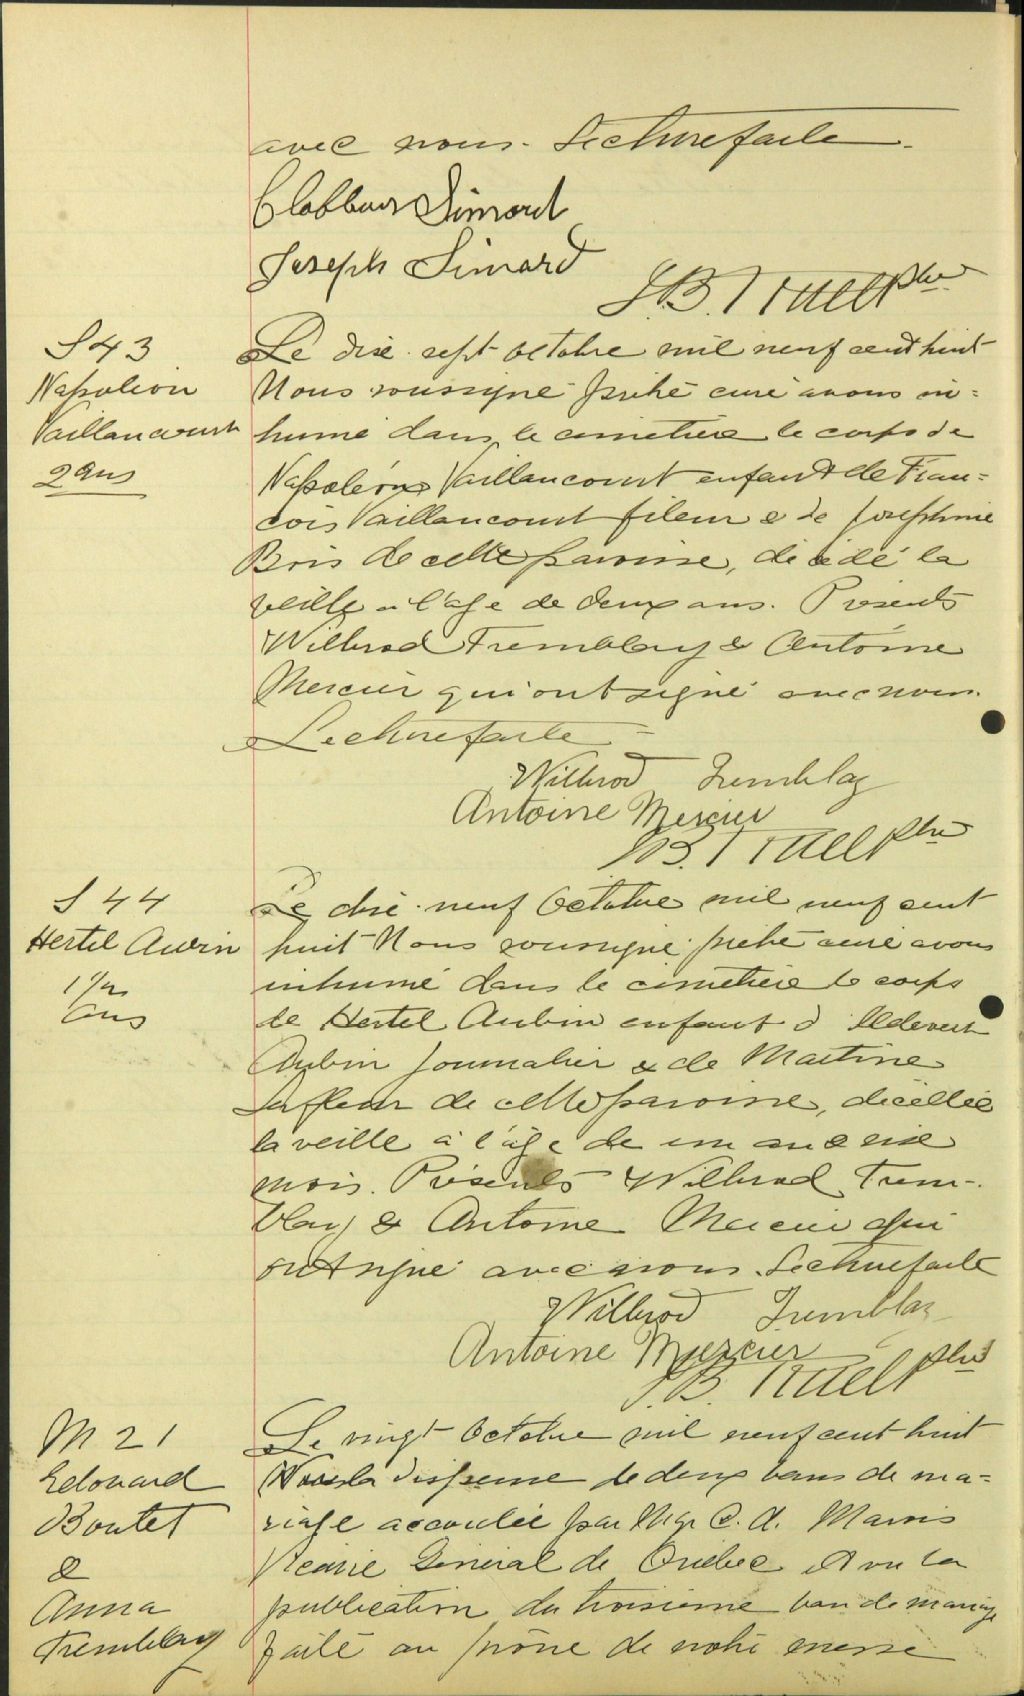 avec nous. Lecture faite.
Simard
Joseph Simard
J.B. Ruel ptre
S 43
Napoléon
Vaillancourt
2 ans
Le dix-sept octobre mil neuf cent huit
Nous soussigné prêtre curé avons in=
humé dans le cimetière le corps de
Napoléon Vaillancourt enfant de Fran=
çois Vaillancourt fileur & de Josephine
Bois de cette paroisse, décédé la
veille à l'age de deux ans. Présents
Wilbrod Tremblay & Antoine
Mercier qui ont signé avec nous.
Lecture faite
Wilbrod Tremblay
Antoine Mercier
J.B. Ruel ptre
S 44
Hertel Aubin
1 1/2
ans
Le dix-neuf Octobre mil neuf cent
huit Nous soussigné prêtre curé avons
inhumé dans le cimetière le corps
de Hertel Aubin enfant d
Aubin journalier & de Martine
Lafleur de cette paroisse, décédée
la veille à l'âge de un an & six
mois. Présents Wilbrod Trem-
blay & Antoine Mercier qui
ont signé avec nous. Lecture faite
Wilbrod Tremblay
Antoine Mercier
J.B. Ruel ptre
M 21
Edouard
Boutet
&
Anna
Tremblay
Le vingt Octobre mil neuf cent huit
Vu la dispense de deux bans de ma=
riage accordée par Mgr C. A. Marois
Vicaire Général de Québec et vu la
publication du troisième ban de mariage
faite au prône de notre messe